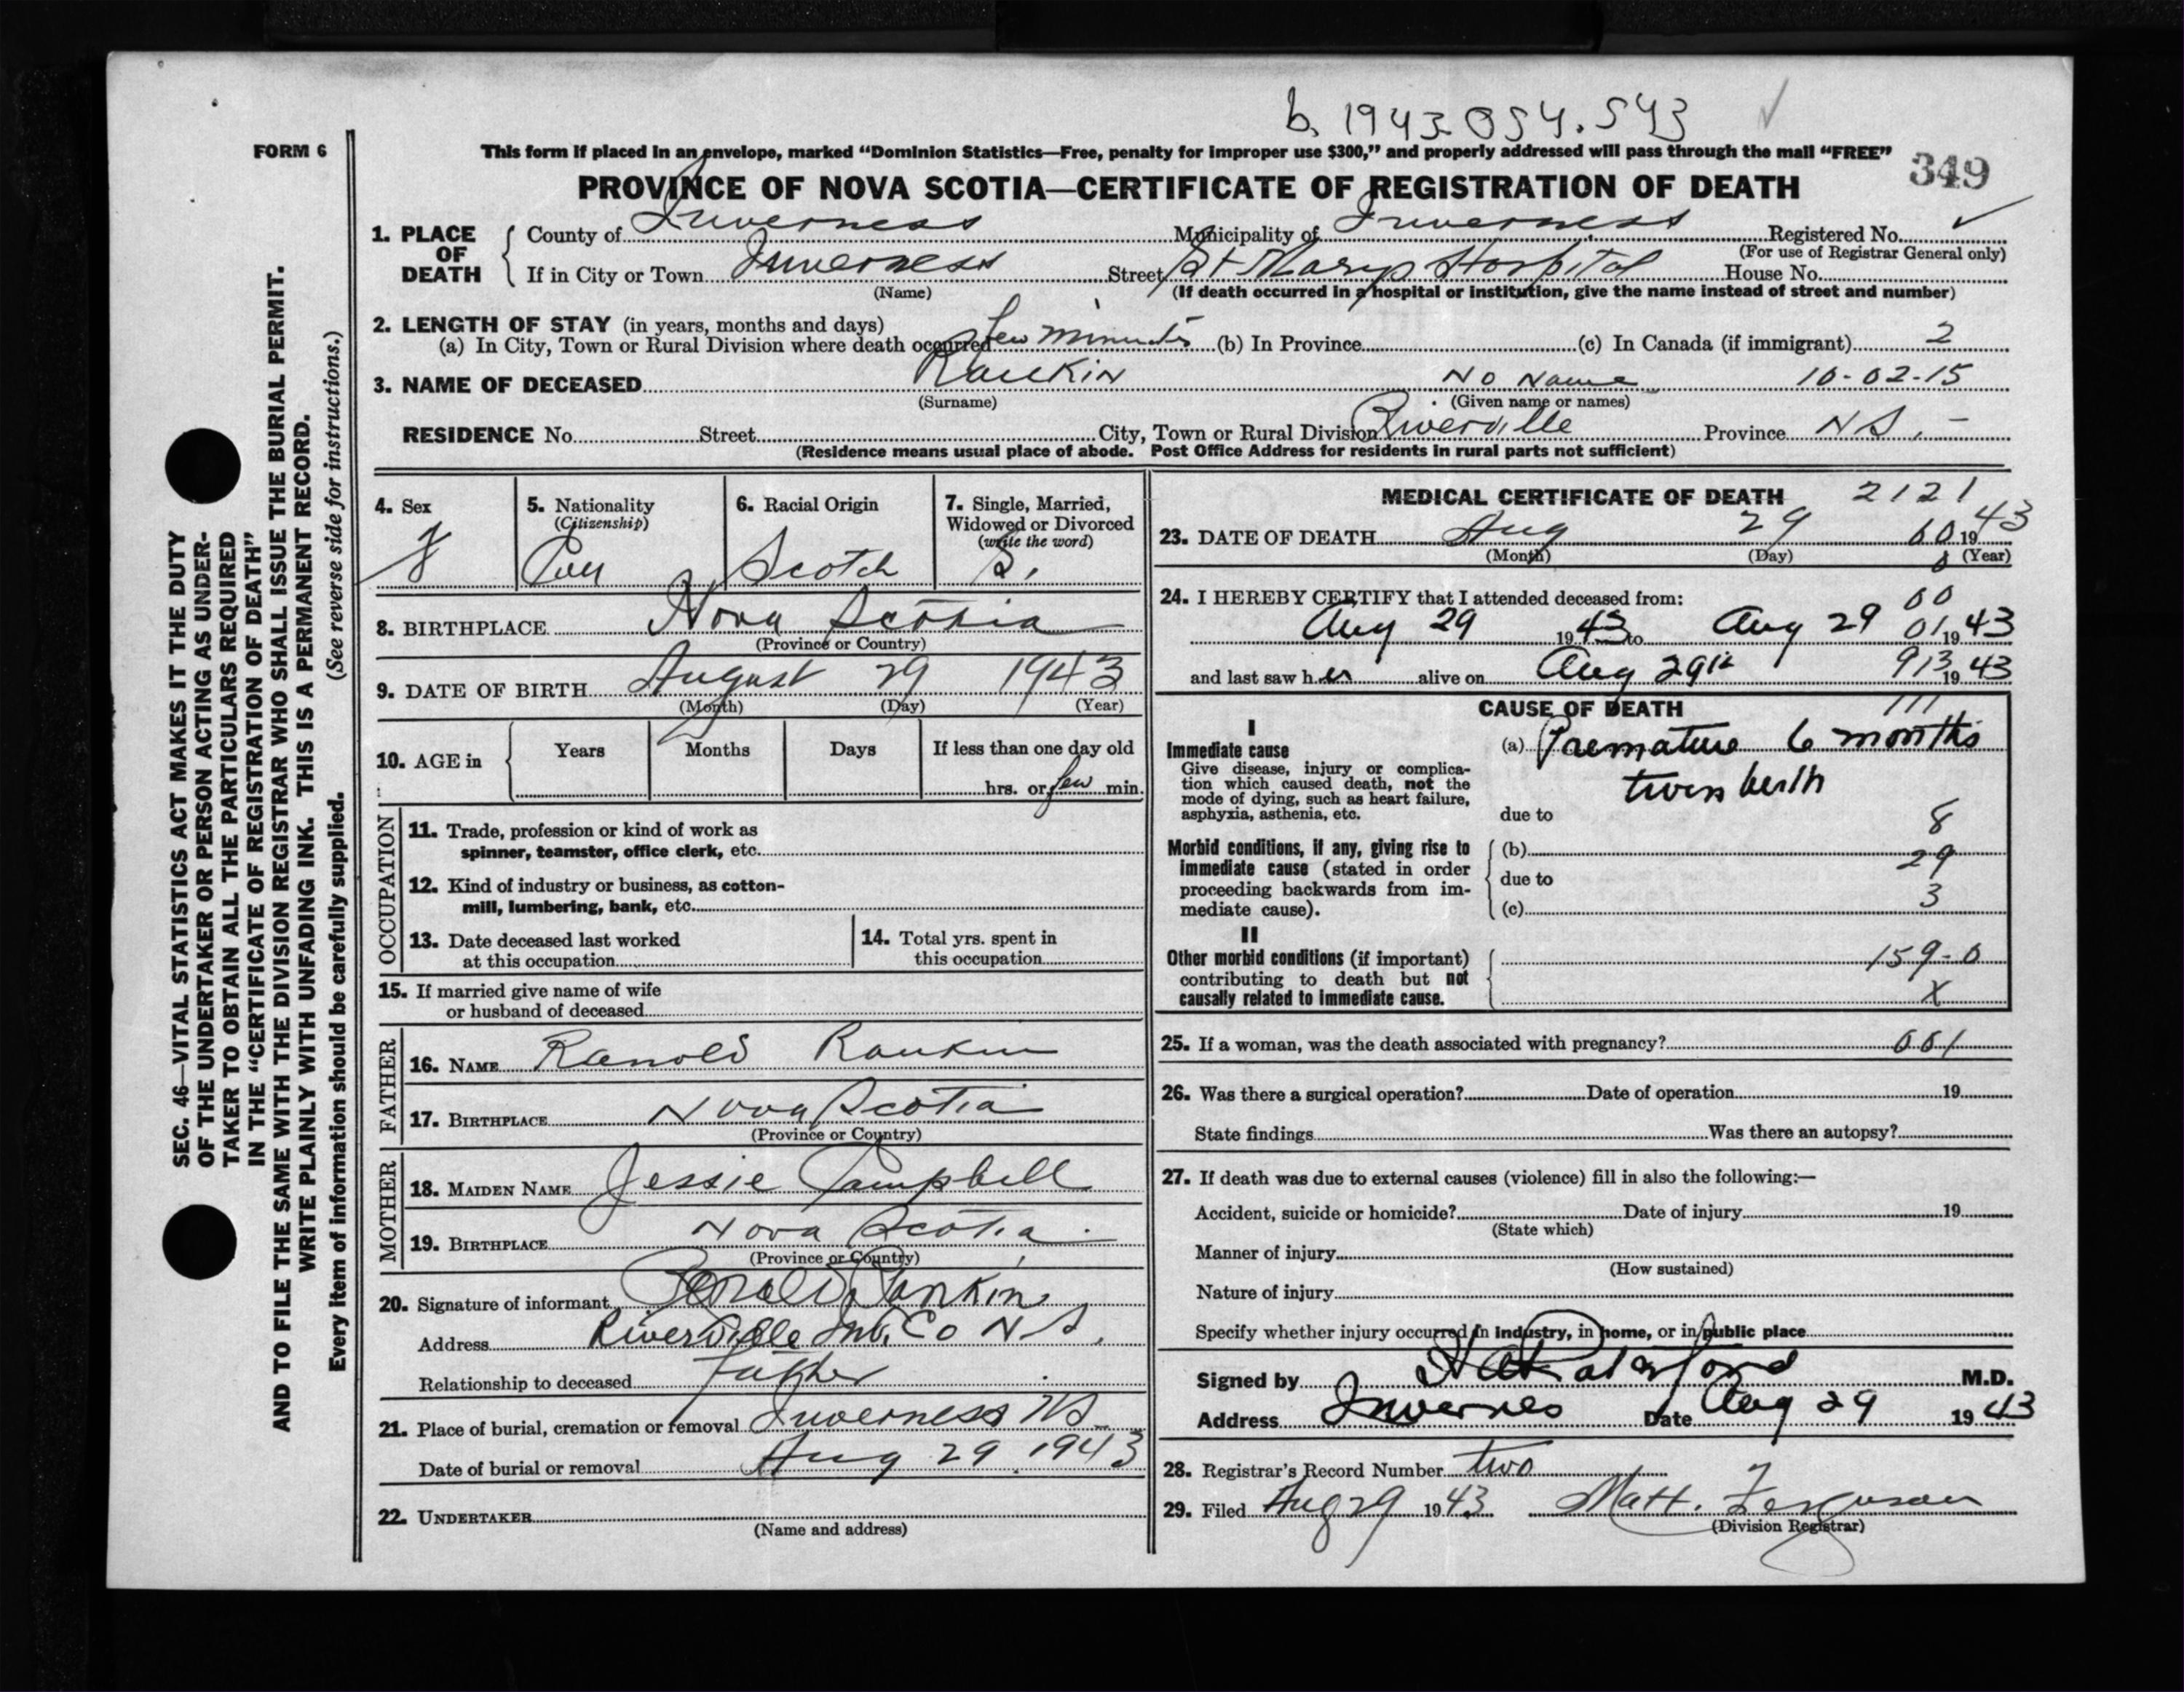 b. 1943.054.543
FORM 6
This form if placed in an envelope, marked "Dominion Statistics—Free, penalty for improper use $300," and properly addressed will pass through the mail "FREE"
349
PROVINCE OF NOVA SCOTIA—CERTIFICATE OF REGISTRATION OF DEATH
1. PLACE OF DEATH County of Inverness Municipality of Inverness Registered No. ✓
(For use of Registrar General only)
If in City or Town Inverness Street St Marys Hospital House No.
(Name) (If death occurred in a hospital or institution, give the name instead of street and number)
2. LENGTH OF STAY (in years, months and days)
(a) In City, Town or Rural Division where death occurred few minutes (b) In Province (c) In Canada (if immigrant) 2
3. NAME OF DECEASED Rankin No Name 10-02-15
(Surname) (Given name or names)
RESIDENCE No. Street City, Town or Rural Division Riverville Province N S. -
(Residence means usual place of abode. Post Office Address for residents in rural parts not sufficient)
4. Sex 5. Nationality (Citizenship) 6. Racial Origin 7. Single, Married, Widowed or Divorced (write the word)
f Can Scotch S.
8. BIRTHPLACE Nova Scotia
(Province or Country)
9. DATE OF BIRTH August 29 1943
(Month) (Day) (Year)
10. AGE in Years Months Days If less than one day old
hrs. or few min.
OCCUPATION
11. Trade, profession or kind of work as
spinner, teamster, office clerk, etc.
12. Kind of industry or business, as cotton-
mill, lumbering, bank, etc.
13. Date deceased last worked
at this occupation
14. Total yrs. spent in
this occupation
15. If married give name of wife
or husband of deceased
FATHER
16. NAME Ranold Rankin
17. BIRTHPLACE Nova Scotia
(Province or Country)
MOTHER
18. MAIDEN NAME Jessie Campbell
19. BIRTHPLACE Nova Scotia
(Province or Country)
20. Signature of informant Rankin
Address Riverville Inv. Co N S.
Relationship to deceased Father
21. Place of burial, cremation or removal Inverness NS
Date of burial or removal Aug 29. 1943
22. UNDERTAKER
(Name and address)
MEDICAL CERTIFICATE OF DEATH 2121
23. DATE OF DEATH Aug 29 60 19 43
(Month) (Day) (Year)
24. I HEREBY CERTIFY that I attended deceased from: 00
Aug 29 19 43 to Aug 29 01 19 43
and last saw h er alive on Aug 29th 913 19 43
CAUSE OF DEATH 111
I
Immediate cause
Give disease, injury or complica-
tion which caused death, not the
mode of dying, such as heart failure,
asphyxia, asthenia, etc.
(a) Premature 6 months
twin birth
due to 8
Morbid conditions, if any, giving rise to
immediate cause (stated in order
proceeding backwards from im-
mediate cause).
(b) 29
due to
(c) 3
II
Other morbid conditions (if important)
contributing to death but not
causally related to immediate cause.
159-0
X
25. If a woman, was the death associated with pregnancy? 001
26. Was there a surgical operation? Date of operation 19
State findings Was there an autopsy?
27. If death was due to external causes (violence) fill in also the following:—
Accident, suicide or homicide? Date of injury 19
(State which)
Manner of injury
(How sustained)
Nature of injury
Specify whether injury occurred in industry, in home, or in public place
Signed by M.D.
Address Invernes Date Aug 29 19 43
28. Registrar's Record Number two
29. Filed Aug 29 19 43 Matt. Ferguson
(Division Registrar)
SEC. 46—VITAL STATISTICS ACT MAKES IT THE DUTY
OF THE UNDERTAKER OR PERSON ACTING AS UNDER-
TAKER TO OBTAIN ALL THE PARTICULARS REQUIRED
IN THE "CERTIFICATE OF REGISTRATION OF DEATH"
AND TO FILE THE SAME WITH THE DIVISION REGISTRAR WHO SHALL ISSUE THE BURIAL PERMIT.
WRITE PLAINLY WITH UNFADING INK. THIS IS A PERMANENT RECORD.
Every item of information should be carefully supplied. (See reverse side for instructions.)